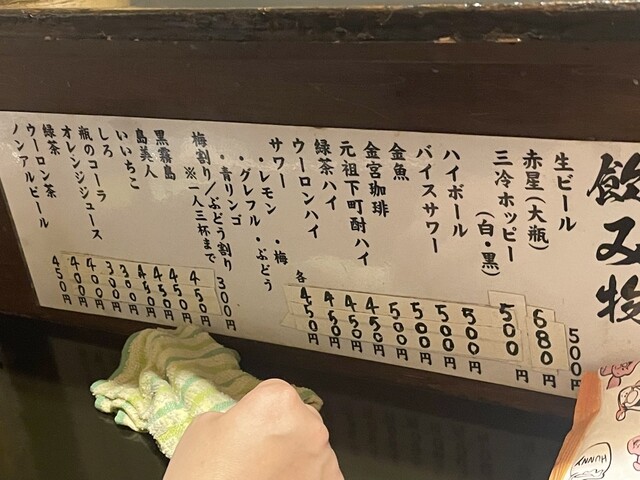 飲み物
生ビール 500円
赤星(大瓶) 680円
三冷ホッピー(白・黒) 500円
ハイボール 500円
バイスサワー 500円
金魚 500円
金宮珈琲 500円
元祖下町酎ハイ 450円
緑茶ハイ 450円
ウーロンハイ 450円
サワー 各450円
・レモン ・梅
・グレフル ・ぶどう
・青リンゴ
梅割り/ぶどう割り 300円
※一人三杯まで
黒霧島 450円
島美人 450円
いいちこ 450円
しろ 450円
瓶のコーラ 300円
オレンジジュース 300円
緑茶 400円
ウーロン茶 400円
ノンアルビール 450円
HUNNY